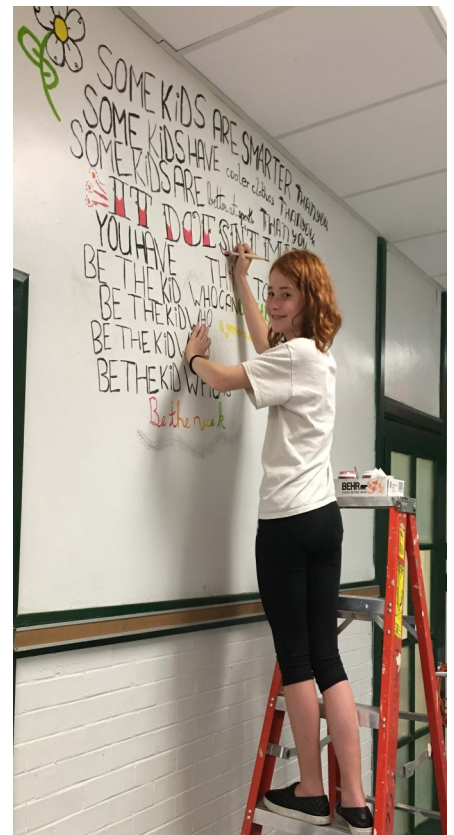 SOME KiDS ARE SMARTER THAN YOU
SOME KIDS HAVE cooler clothes THAN YOU
SOME KiDS ARE better at sports THAN YOU
IT DOESN'T
YOU HAVE
BE THE KID WHO CAN
BE THE KID WHO
BE THE KID
BE THE KID WHO
Be the nice k
BEHR